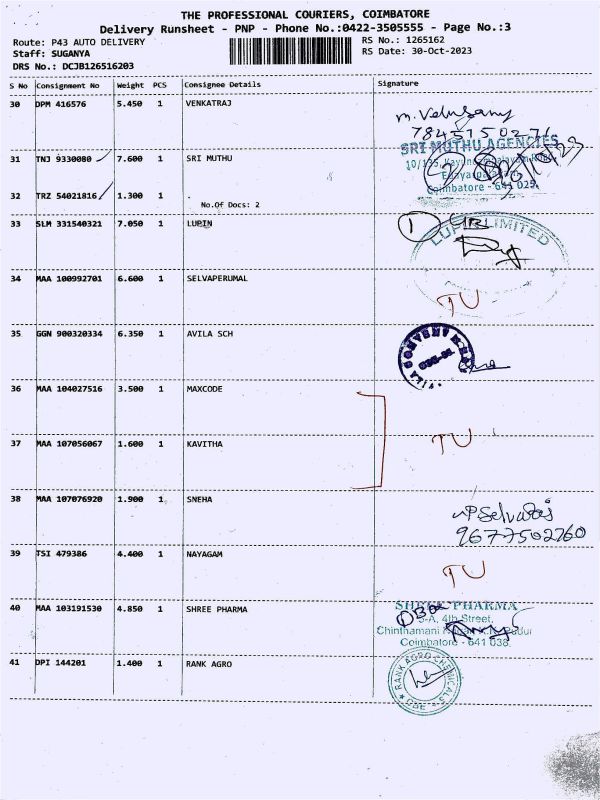 THE PROFESSIONAL COURIERS, COIMBATORE
Delivery Runsheet - PNP - Phone No.:0422-3505555 - Page No.:3
Route: P43 AUTO DELIVERY RS No.: 1265162
Staff: SUGANYA RS Date: 30-Oct-2023
DRS No.: DCJB126516203
S No Consignment No Weight PCS Consignee Details Signature
30 DPM 416576 5.450 1 VENKATRAJ
7845150276
SRI MUTHU AGENCIES
31 TNJ 9330080 7.600 1 SRI MUTHU
Coimbatore - 641 025.
32 TRZ 54021816 1.300 1 .
No.Of Docs: 2
33 SLM 331540321 7.050 1 LUPIN
1
LUPIN LIMITED
34 MAA 100992701 6.600 1 SELVAPERUMAL
TU
35 GGN 900320334 6.350 1 AVILA SCH
36 MAA 104027516 3.500 1 MAXCODE
37 MAA 107056067 1.600 1 KAVITHA
TU
38 MAA 107076920 1.900 1 SNEHA
P Selvaraj
9677502760
39 TSI 479386 4.400 1 NAYAGAM
TU
40 MAA 103191530 4.850 1 SHREE PHARMA
SHREE PHARMA
5-A, 4th Street,
Chinthamani
Coimbatore - 641 038.
41 DPI 144201 1.400 1 RANK AGRO
RANK AGRO CHEMICALS
CBE